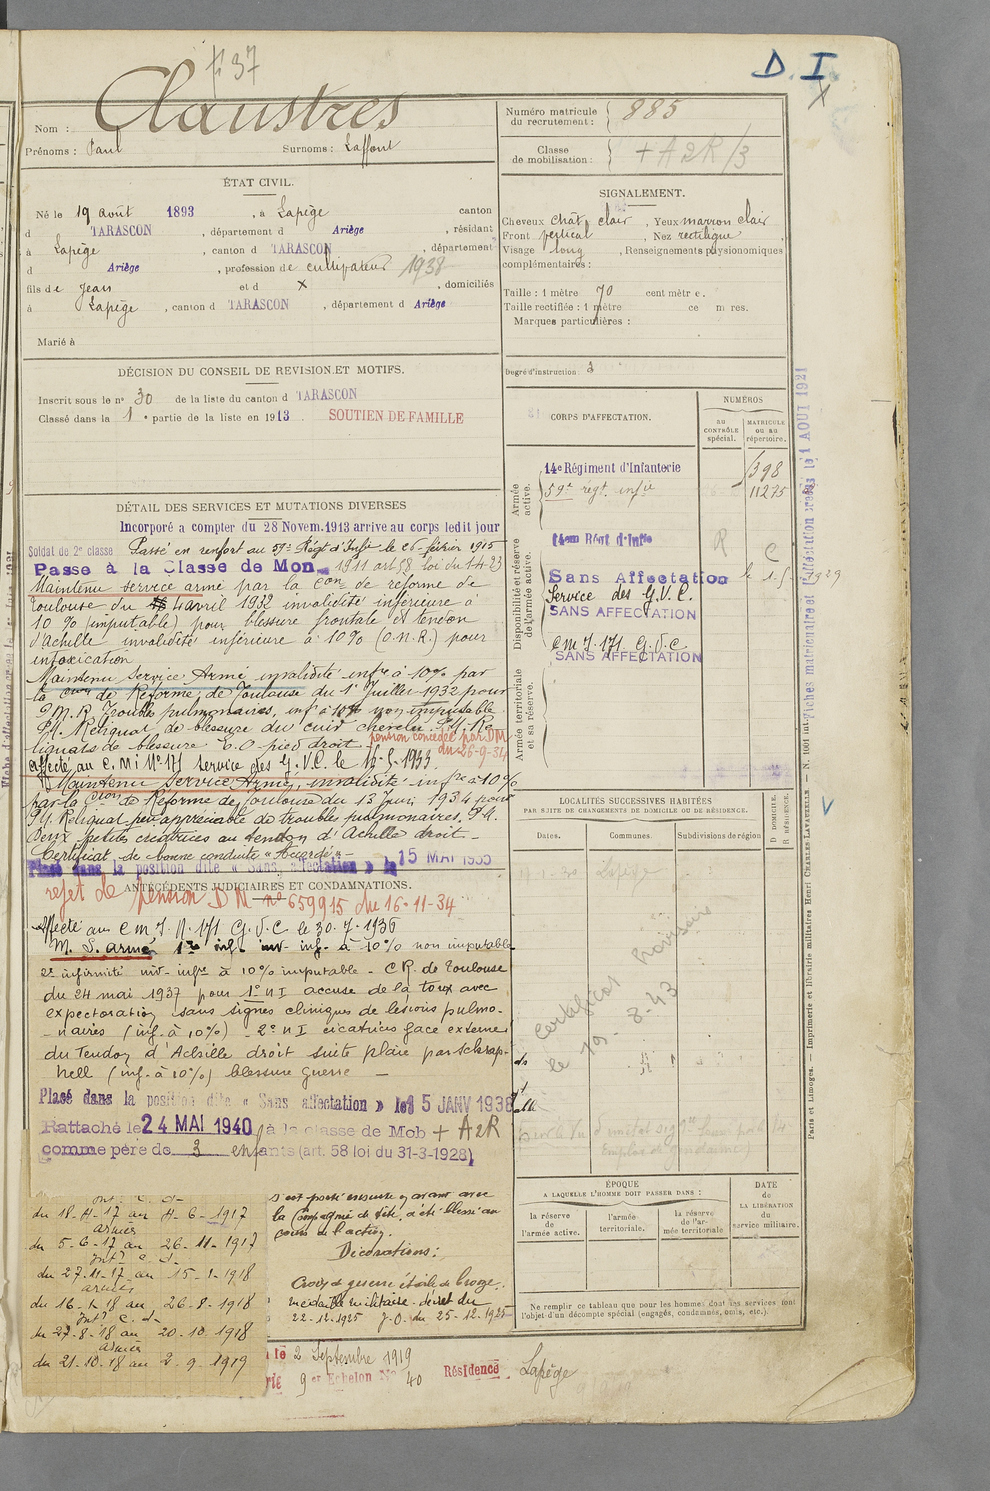 f° 37
D. I
X
Claustres
Nom :
Prénoms : Paul Surnoms : Laffont
ÉTAT CIVIL.
Né le 19 août 1893, à Lapège canton
d TARASCON, département d Ariège, résidant
à Lapège, canton d TARASCON, département
d Ariège, profession de cultivateur 1938
fils de Jean et d X, domiciliés
à Lapège, canton d TARASCON, département d Ariège
Marié à
DÉCISION DU CONSEIL DE REVISION ET MOTIFS.
Inscrit sous le n° 30 de la liste du canton d TARASCON
Classé dans la 1e partie de la liste en 1913. SOUTIEN DE FAMILLE
DÉTAIL DES SERVICES ET MUTATIONS DIVERSES
Incorporé a compter du 28 Novem. 1913 arrive au corps ledit jour
Soldat de 2e classe Passé en renfort au 59e Régt d'Infie le 26 février 1915
Passe à la Classe de Mon 1911 art 58 loi du 1-4-23
Maintenu service armé par la Con de reforme de
Toulouse du 4 avril 1932 invalidité inférieure à
10 % (imputable) pour blessure frontale et tendon
d'Achille invalidité inférieure à 10% (O.N.R.) pour
intoxication
Maintenu Service Armé invalidité infre à 10% par
la Cion de Réforme de Toulouse du 1er Juillet 1932 pour
P.M.R Troubles pulmonaires, inf à 10% non imputable
P.M. Reliquat de blessure du cuir chevelu. P.M. Re-
liquats de blessure C.O pied droit
pension concédée par DM
du 26-9-34
affecté au C.M.I N° 171 service des G.V.C. le 15-5-1933.
Maintenu Service Armé, invalidité infre à 10%
par la Cion de Réforme de Toulouse du 13 Juin 1934 pour
P.M. Reliquat peu appréciable de troubles pulmonaires. P.M.
Deux petites cicatrices au tendon d'Achille droit _
Certificat de bonne conduite "Accordé" _
Placé dans la position dite « Sans affectation » le 15 MAI 1935
ANTÉCÉDENTS JUDICIAIRES ET CONDAMNATIONS.
rejet de pension D M n° 659915 du 16-11-34
Affecté au C M I. N. 171 G.V.C le 30.7.1936
M. S. armé 1re inf. inv. inf. à 10% non imputable
2e infirmité inv- infre à 10% imputable - CR. de Toulouse
du 24 mai 1937 pour 1° n I accuse de la toux avec
expectoration sans signes cliniques de lésions pulmo-
naires (inf. à 10%) - 2° n I cicatrices face externe
du Tendon d'Achille droit suite plaie par schrap-
nell (inf. à 10%) blessure guerre _
Placé dans la position dite « Sans affectation » le 15 JANV 1938
Rattaché le 24 MAI 1940 à la classe de Mob + A2R
comme père de 3 enfants (art. 58 loi du 31-3-1928)
Int. C. d-
du 18-4-17 au 4-6-1917
armées
du 5-6-17 au 26-11-1917
Intr C. d-
du 27-11-17 au 15-1-1918
armées
du 16-1-18 au 26-8-1918
Intr C. d-
du 27-8-18 au 20-10-1918
armées
du 21-10-18 au 2-9-1919
s'est porté ensuite en avant avec
la Compagnie de tête, a été blessé au
cours de l'action.
Décorations :
Croix de guerre étoile de bronze.
médaille militaire. décret du
22-12-1925 J.O. du 25-12-1925
le 2 Septembre 1919
9er Echelon N° 40 Résidence Lapège
Numéro matricule du recrutement : 885
Classe de mobilisation : + A2R/3
SIGNALEMENT.
Cheveux chât. clair, Yeux marron clair
Front vertical, Nez rectiligne
Visage long, Renseignements physionomiques
complémentaires :
Taille : 1 mètre 70 centimètres.
Taille rectifiée : 1 mètre ce m res.
Marques particulières :
Degré d'instruction : 3
CORPS D'AFFECTATION.
NUMÉROS
AU CONTRÔLE spécial.
MATRICULE ou au répertoire.
Armée active.
14e Régiment d'Infanterie 1398
59e régt. infie 11275
Disponibilité et réserve de l'armée active.
14eme Régt d'Infie R C
Sans Affectation le 1-5-1929
Service des G.V.C.
SANS AFFECTATION
C M I. 171 G.V.C
SANS AFFECTATION
Armée territoriale et sa réserve.
LOCALITÉS SUCCESSIVES HABITÉES
PAR SUITE DE CHANGEMENTS DE DOMICILE OU DE RÉSIDENCE.
Dates. Communes. Subdivisions de région
D DOMICILE. R RÉSIDENCE.
Lapège
Certificat provisoire
le 19-8-43
ÉPOQUE
A LAQUELLE L'HOMME DOIT PASSER DANS :
la réserve de l'armée active.
l'armée territoriale.
la réserve de l'armée territoriale
DATE de LA LIBÉRATION du service militaire.
Ne remplir ce tableau que pour les hommes dont les services font
l'objet d'un décompte spécial (engagés, condamnés, omis, etc.)
Fiches matriculaire et d'affectation créées le 1 AOUT 1921
Paris et Limoges. — Imprimerie et librairie militaires Henri CHARLES-LAVAUZELLE. — N. 1001 int.